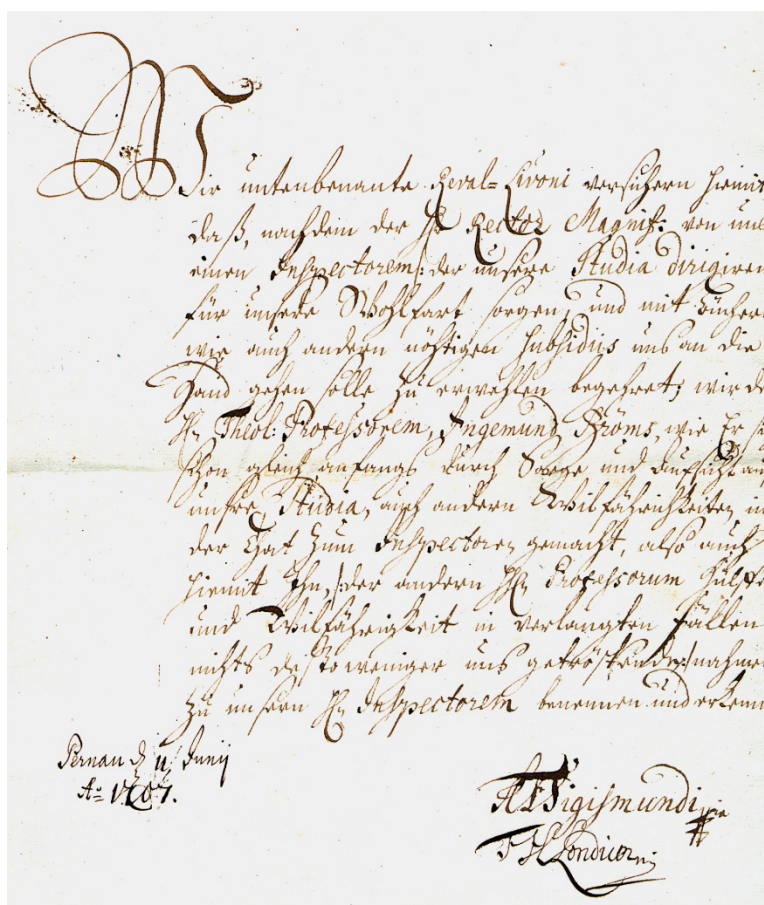 Wir untenbenante Reval=Lironi versichern hiemit
daß, nachdem der H. Rector Magnif: von uns
einen Inspectorem /: der unsere Studia dirigiren
für unsere Wohlfart sorgen, und mit Bücher
wie auch andern nöhtigen subsidiis uns an die
Hand gehen solle zu erwehlen begehret; wir de
H. Theol: Professorem, Ingemund Bröms, wie Er
schon gleich anfangs durch Sorge und aufsicht au
unsre Studia, auch andern Wilfährichkeiten, in
der That zum Inspectoren gemacht, also auch
hiemit Ihn, /: der andern HH. Professorum hülfe
und Wilfährigkeit in verlangten Fällen
nichts desto weniger uns getröstende :/ nahme
zu unsern H. Inspectorem benennen und erkenn
Pernau d. 11 Junij
Aō 1707.
Sigismundi
Londicer